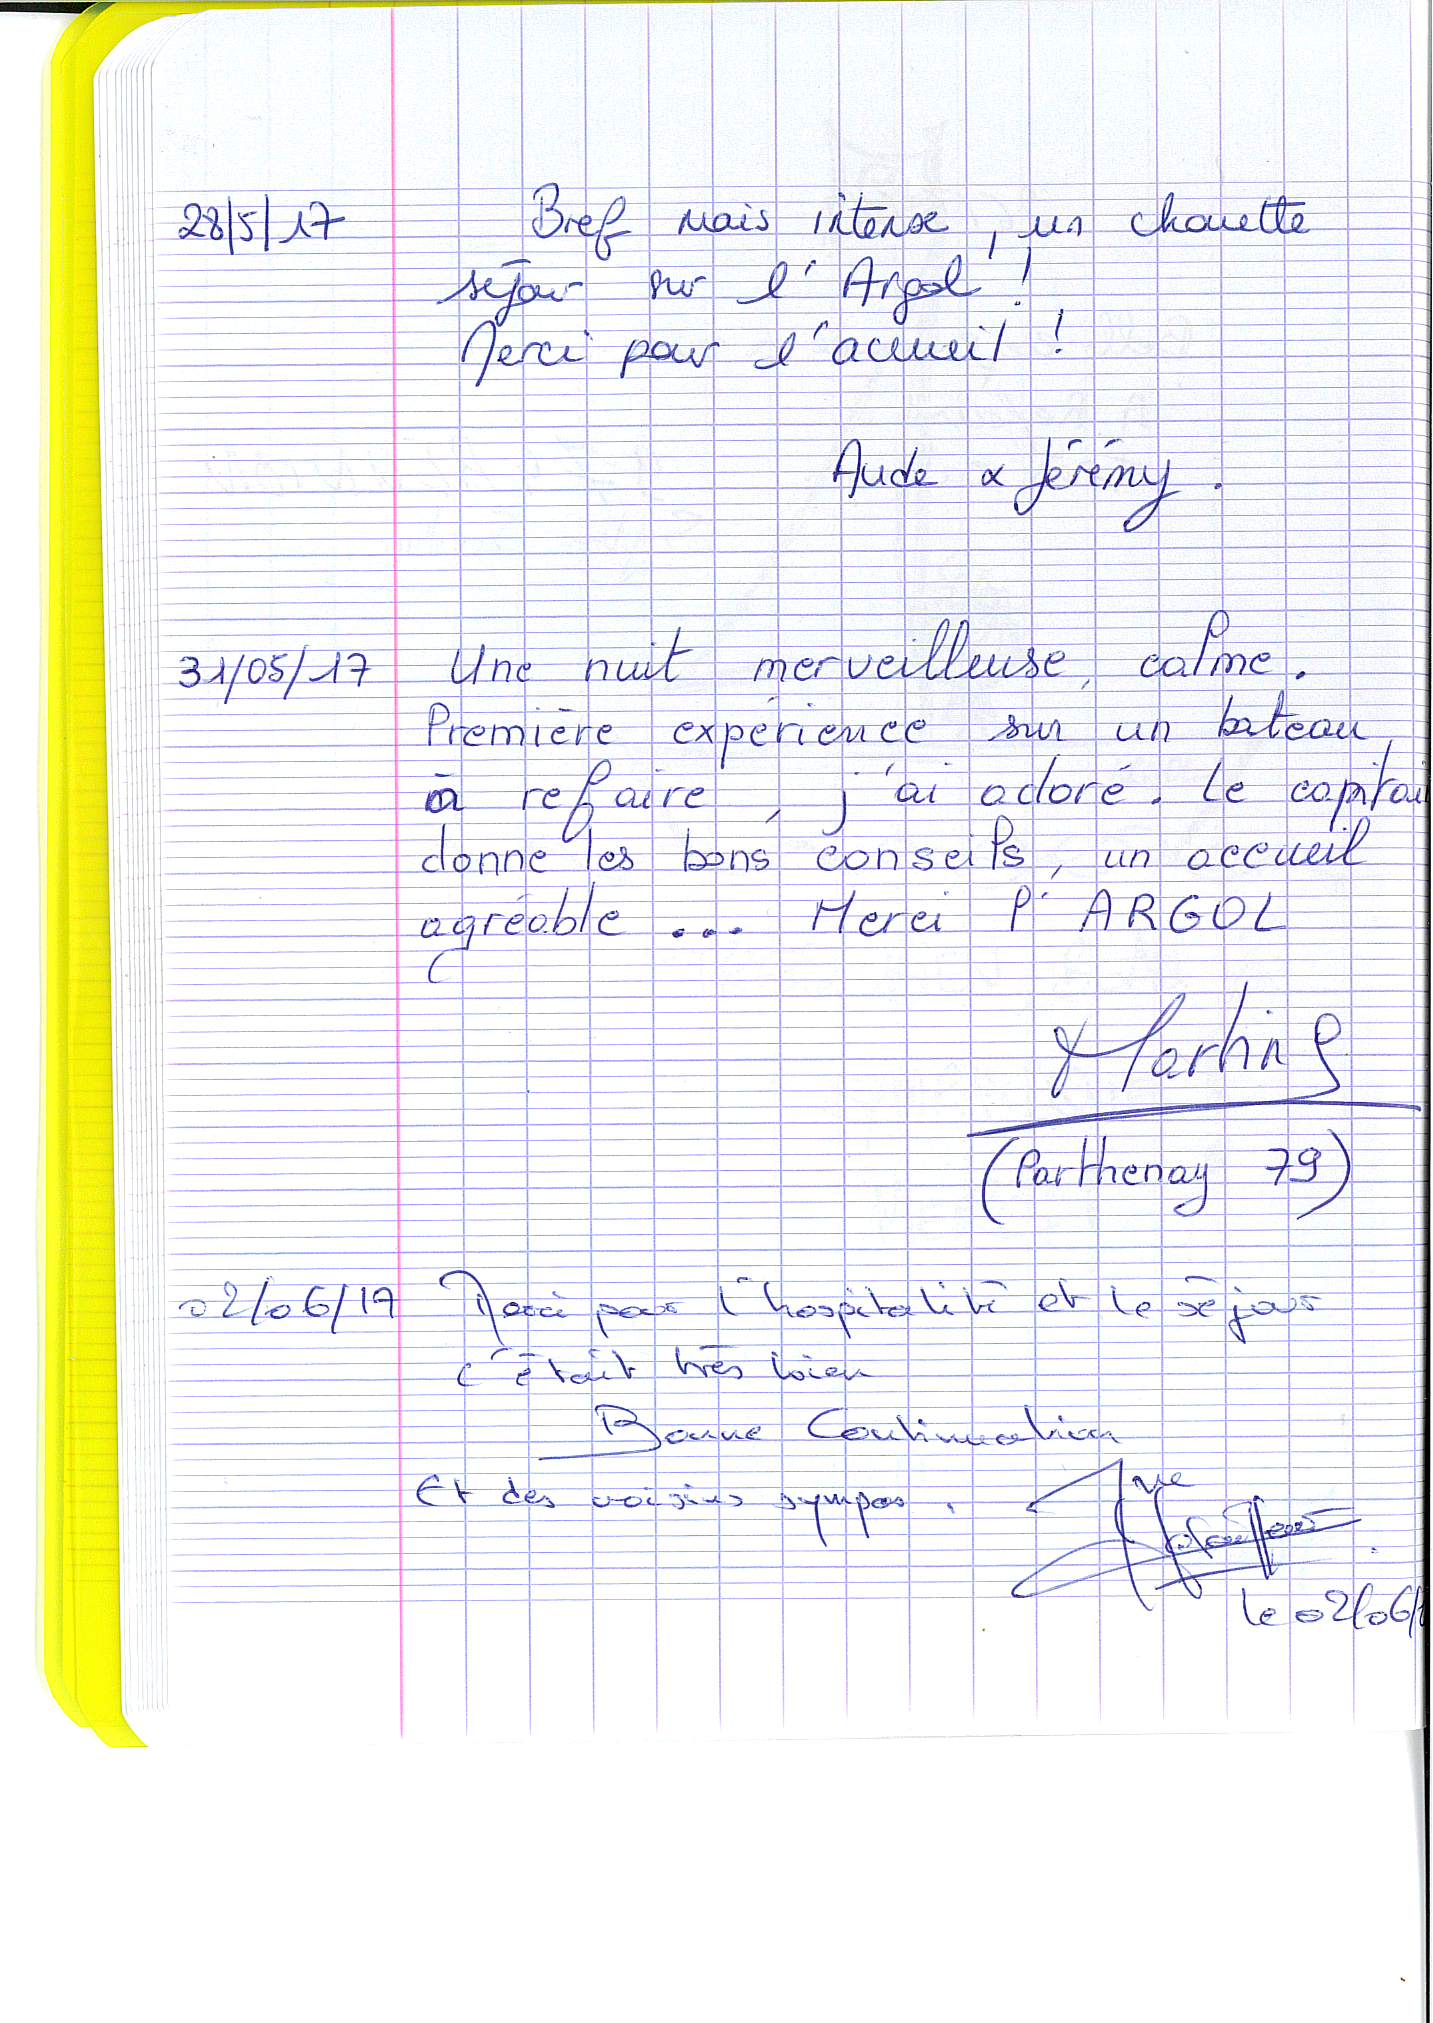 28/5/17 Bref mais intense, un chouette
séjour sur l'Argol !
Merci pour l'accueil !
Aude & Jérémy.
31/05/17 Une nuit merveilleuse, calme.
Première expérience sur un bateau,
à refaire, j'ai adoré. Le capitai
donne les bons conseils, un accueil
agréable ... Merci l'ARGOL
Martin S
(Parthenay 79)
02/06/17 Merci pour l'hospitalité et le séjour
c'était très bien
Bonne Continuation
Et des voisins sympas.
le 02/06/1